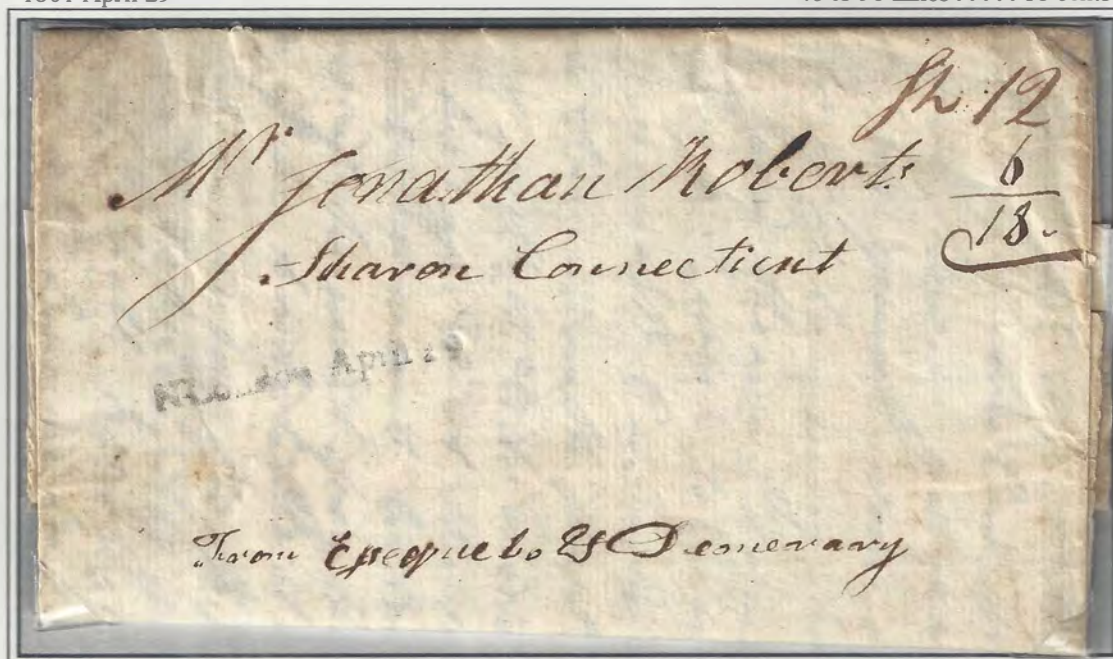 Sh 12
6
18
Mr Jonathan Roberts
Sharon Connecticut
April 29
From Essequebo & Demerary